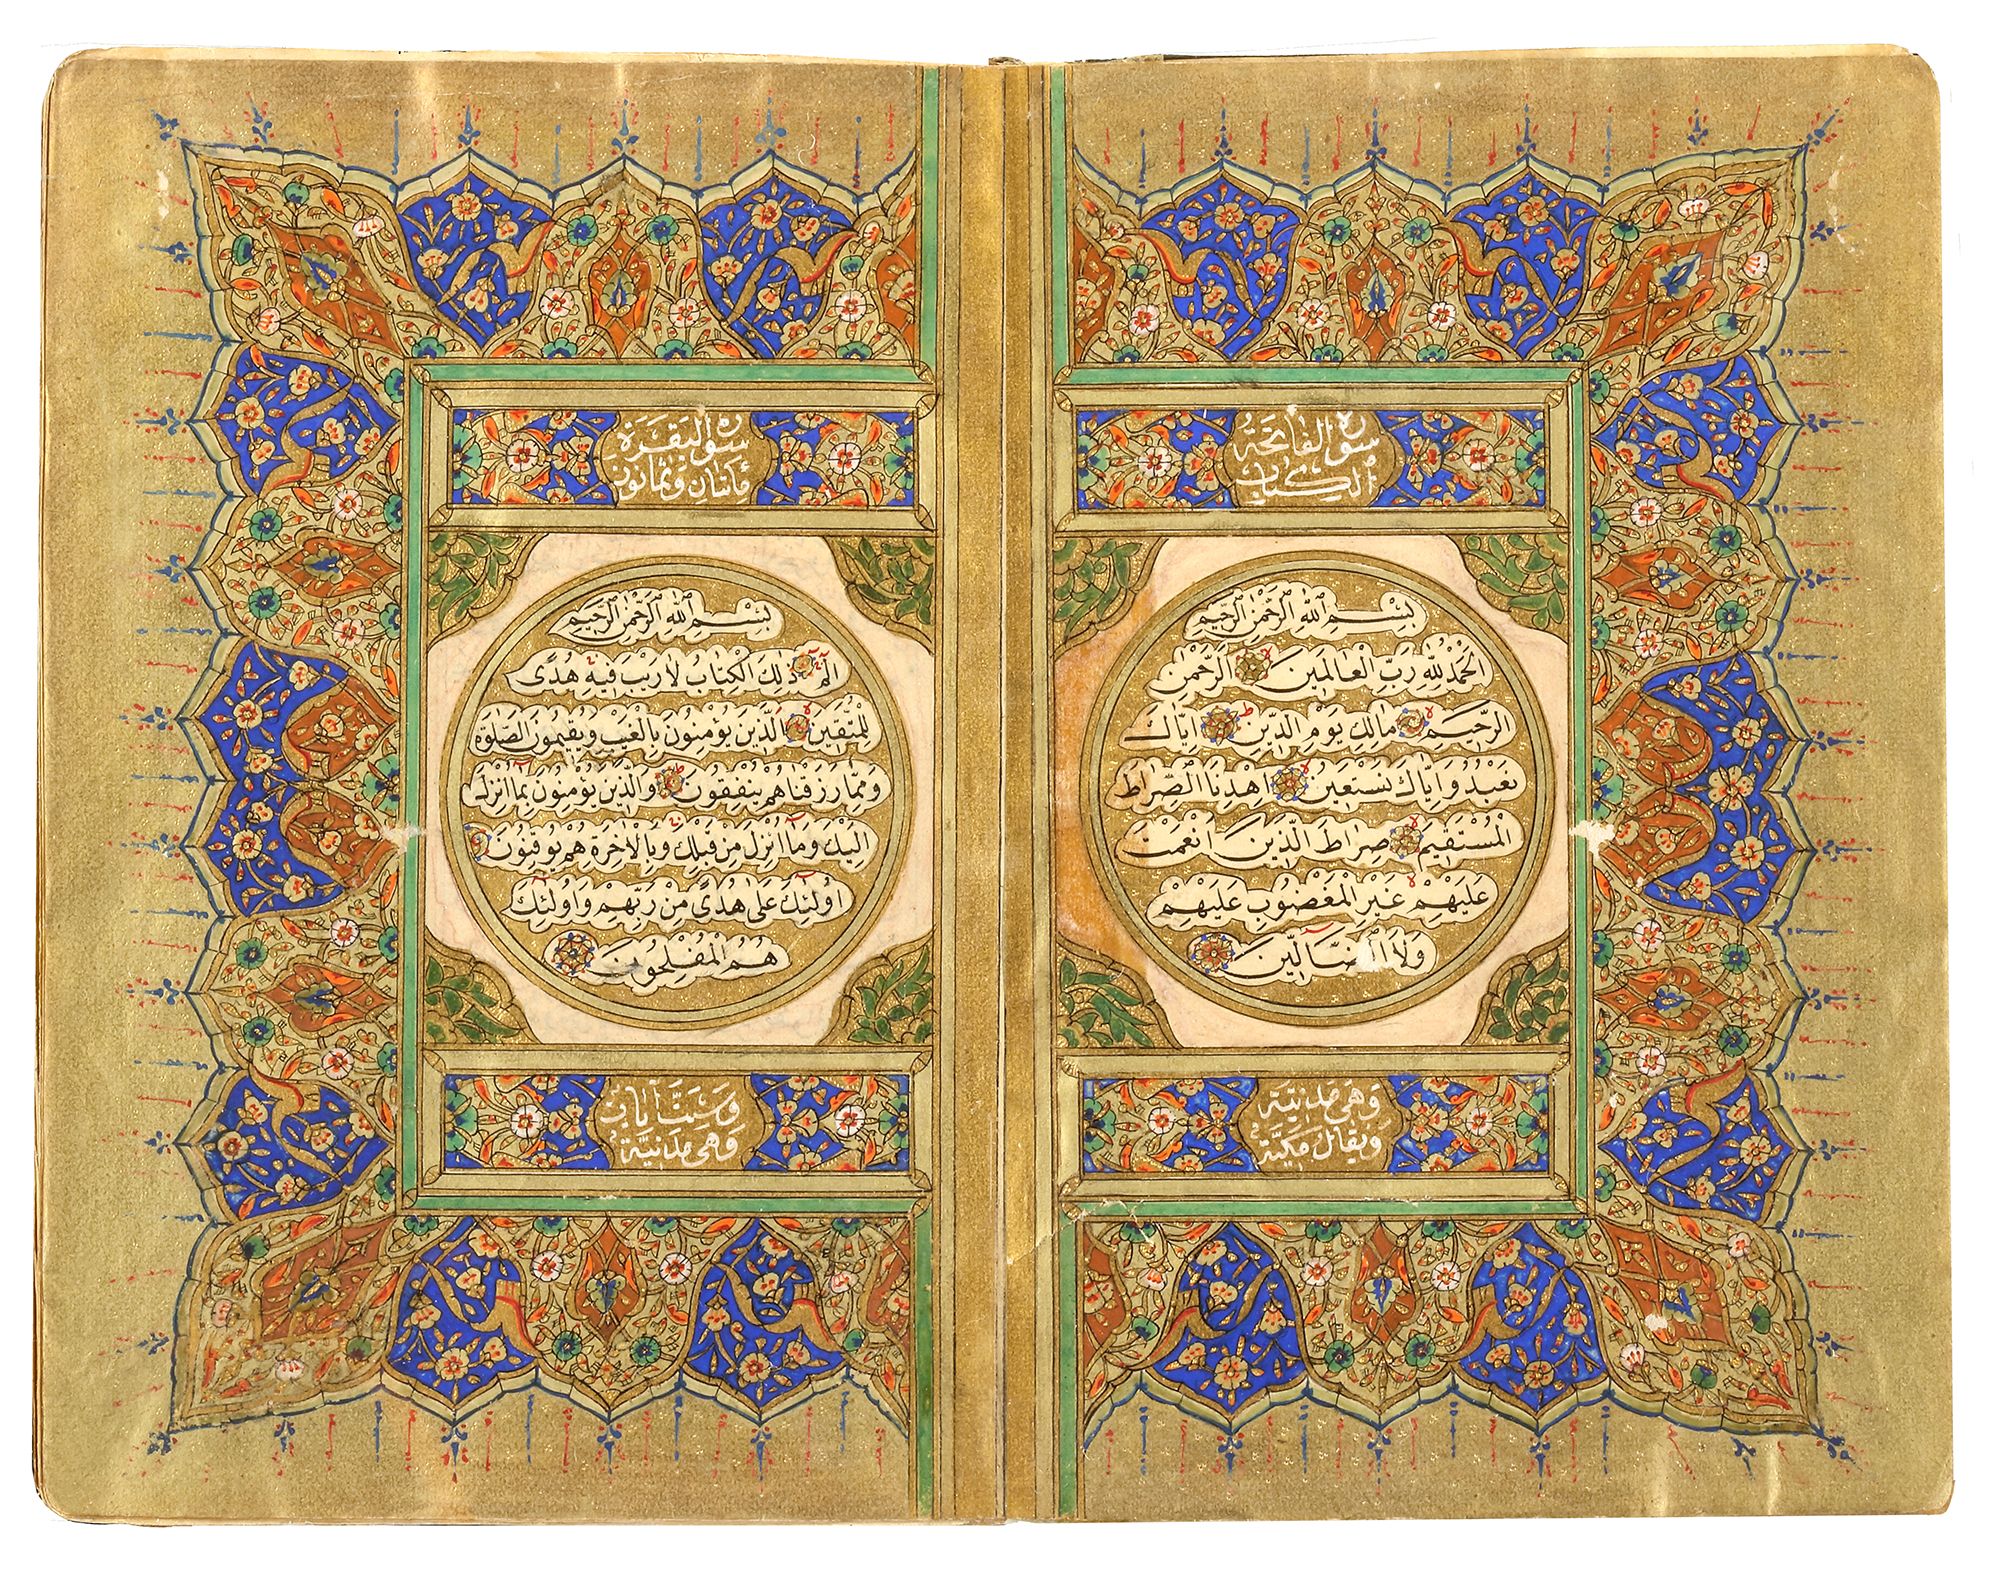 سورة الفاتحة
الكتاب
بسم الله الرحمن الرحيم
الحمد لله رب العالمين الرحمن
الرحيم مالك يوم الدين اياك
نعبد واياك نستعين اهدنا الصراط
المستقيم صراط الذين انعمت
عليهم غير المغضوب عليهم
ولا الضالين
وهي مدنية
ويقال مكية
سورة البقرة
مائتان وثمانون
بسم الله الرحمن الرحيم
الم ذلك الكتاب لا ريب فيه هدى
للمتقين الذين يؤمنون بالغيب ويقيمون الصلوة
ومما رزقناهم ينفقون والذين يؤمنون بما انزل
اليك وما انزل من قبلك وبالاخرة هم يوقنون
اولئك على هدى من ربهم واولئك
هم المفلحون
وست ايات
وهي مدنية